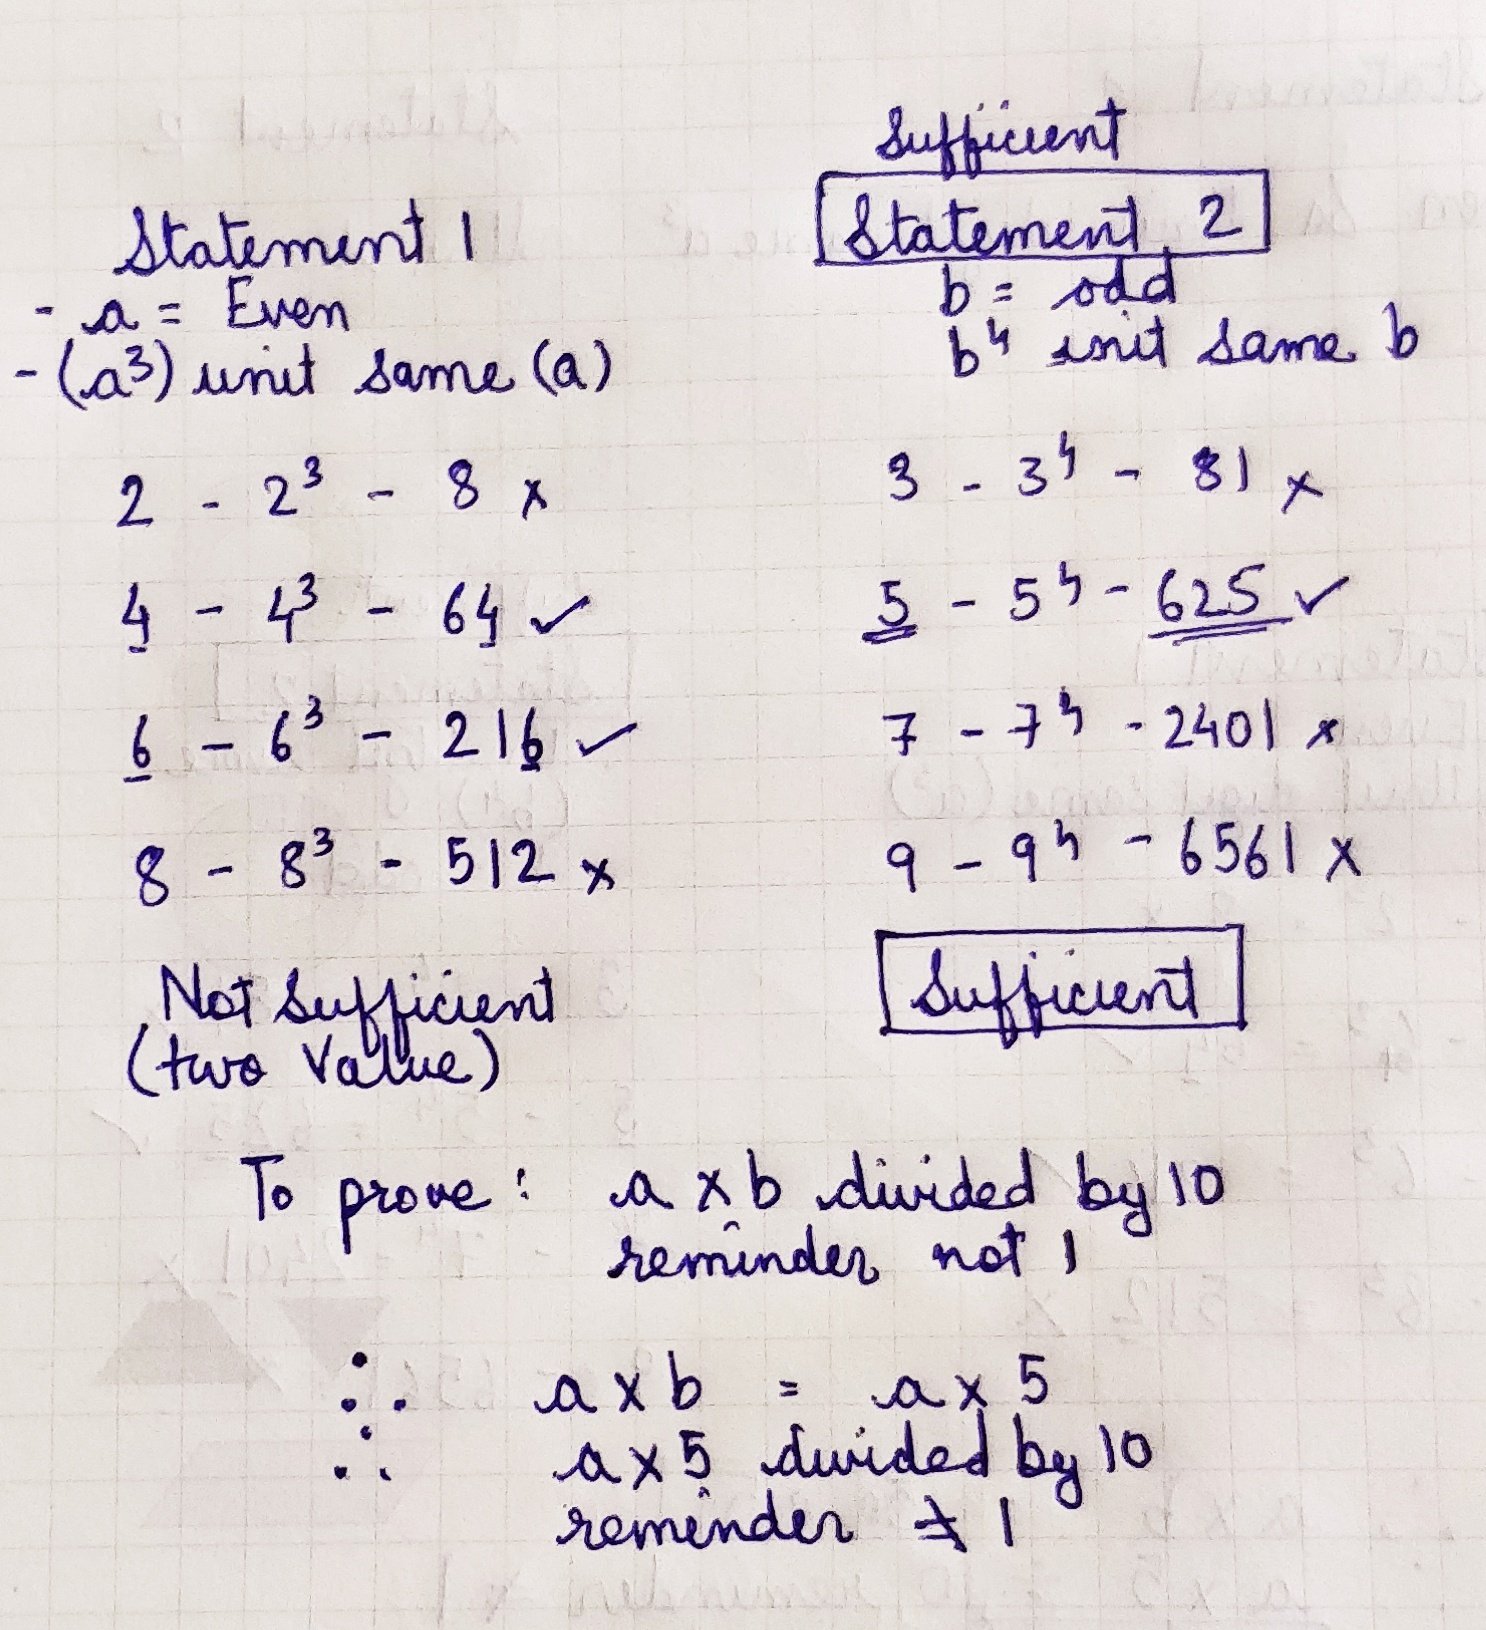 Statement 1
- a = Even
- (a³) unit same (a)
2 - 2³ - 8 x
4 - 4³ - 64 ✓
6 - 6³ - 216 ✓
8 - 8³ - 512 x
Not Sufficient
(two Value)
Sufficient
Statement 2
b = odd
b⁴ unit same b
3 - 3⁴ - 81 x
5 - 5⁴ - 625 ✓
7 - 7⁴ - 2401 x
9 - 9⁴ - 6561 x
Sufficient
To prove : a x b divided by 10
reminder not 1
∴ a x b = a x 5
∴ a x 5 divided by 10
reminder ≠ 1